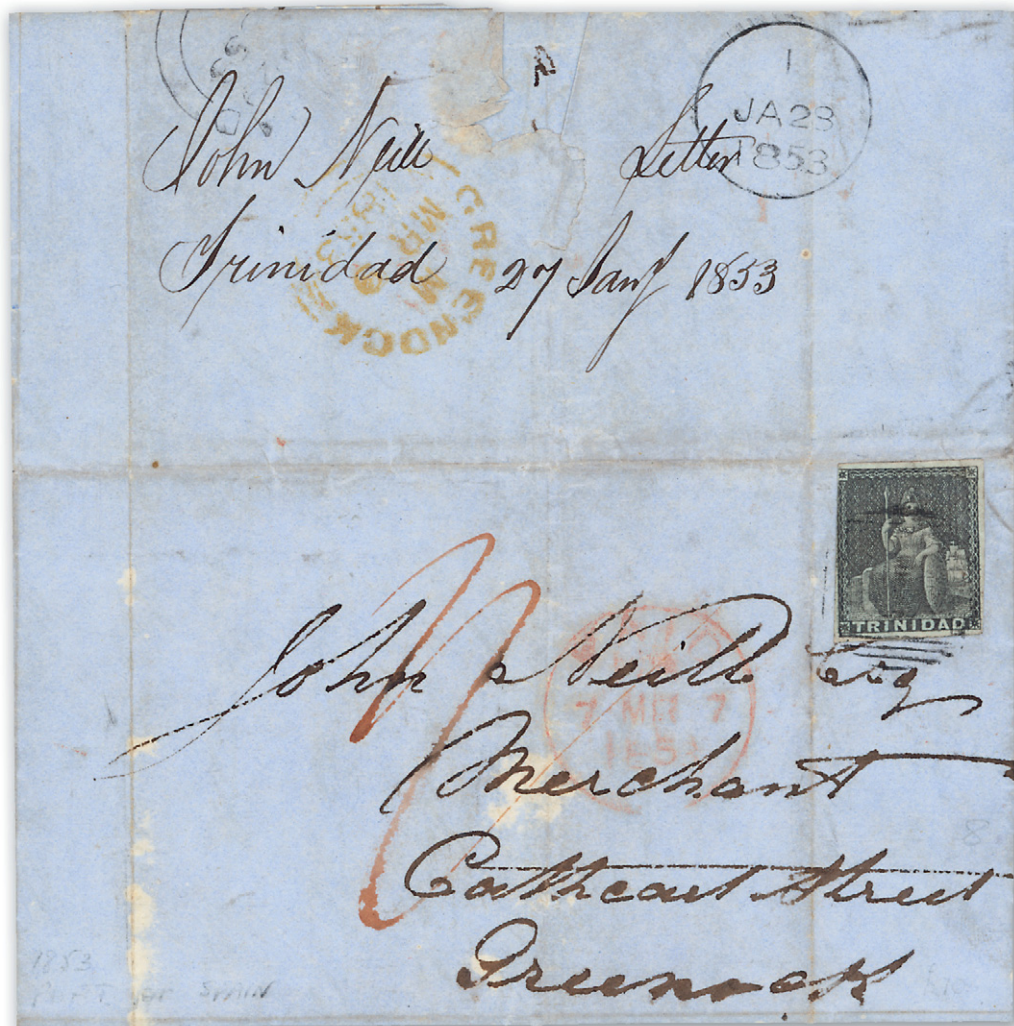 1
JA 28
1853
John Neill Letter
Trinidad 27 Jany 1853
GREENOCK
MR
TRINIDAD
John Neill Esq
7 MR 7
185
Merchant
Cathcart Street
Greenock
8
1853
PORT OF SPAIN